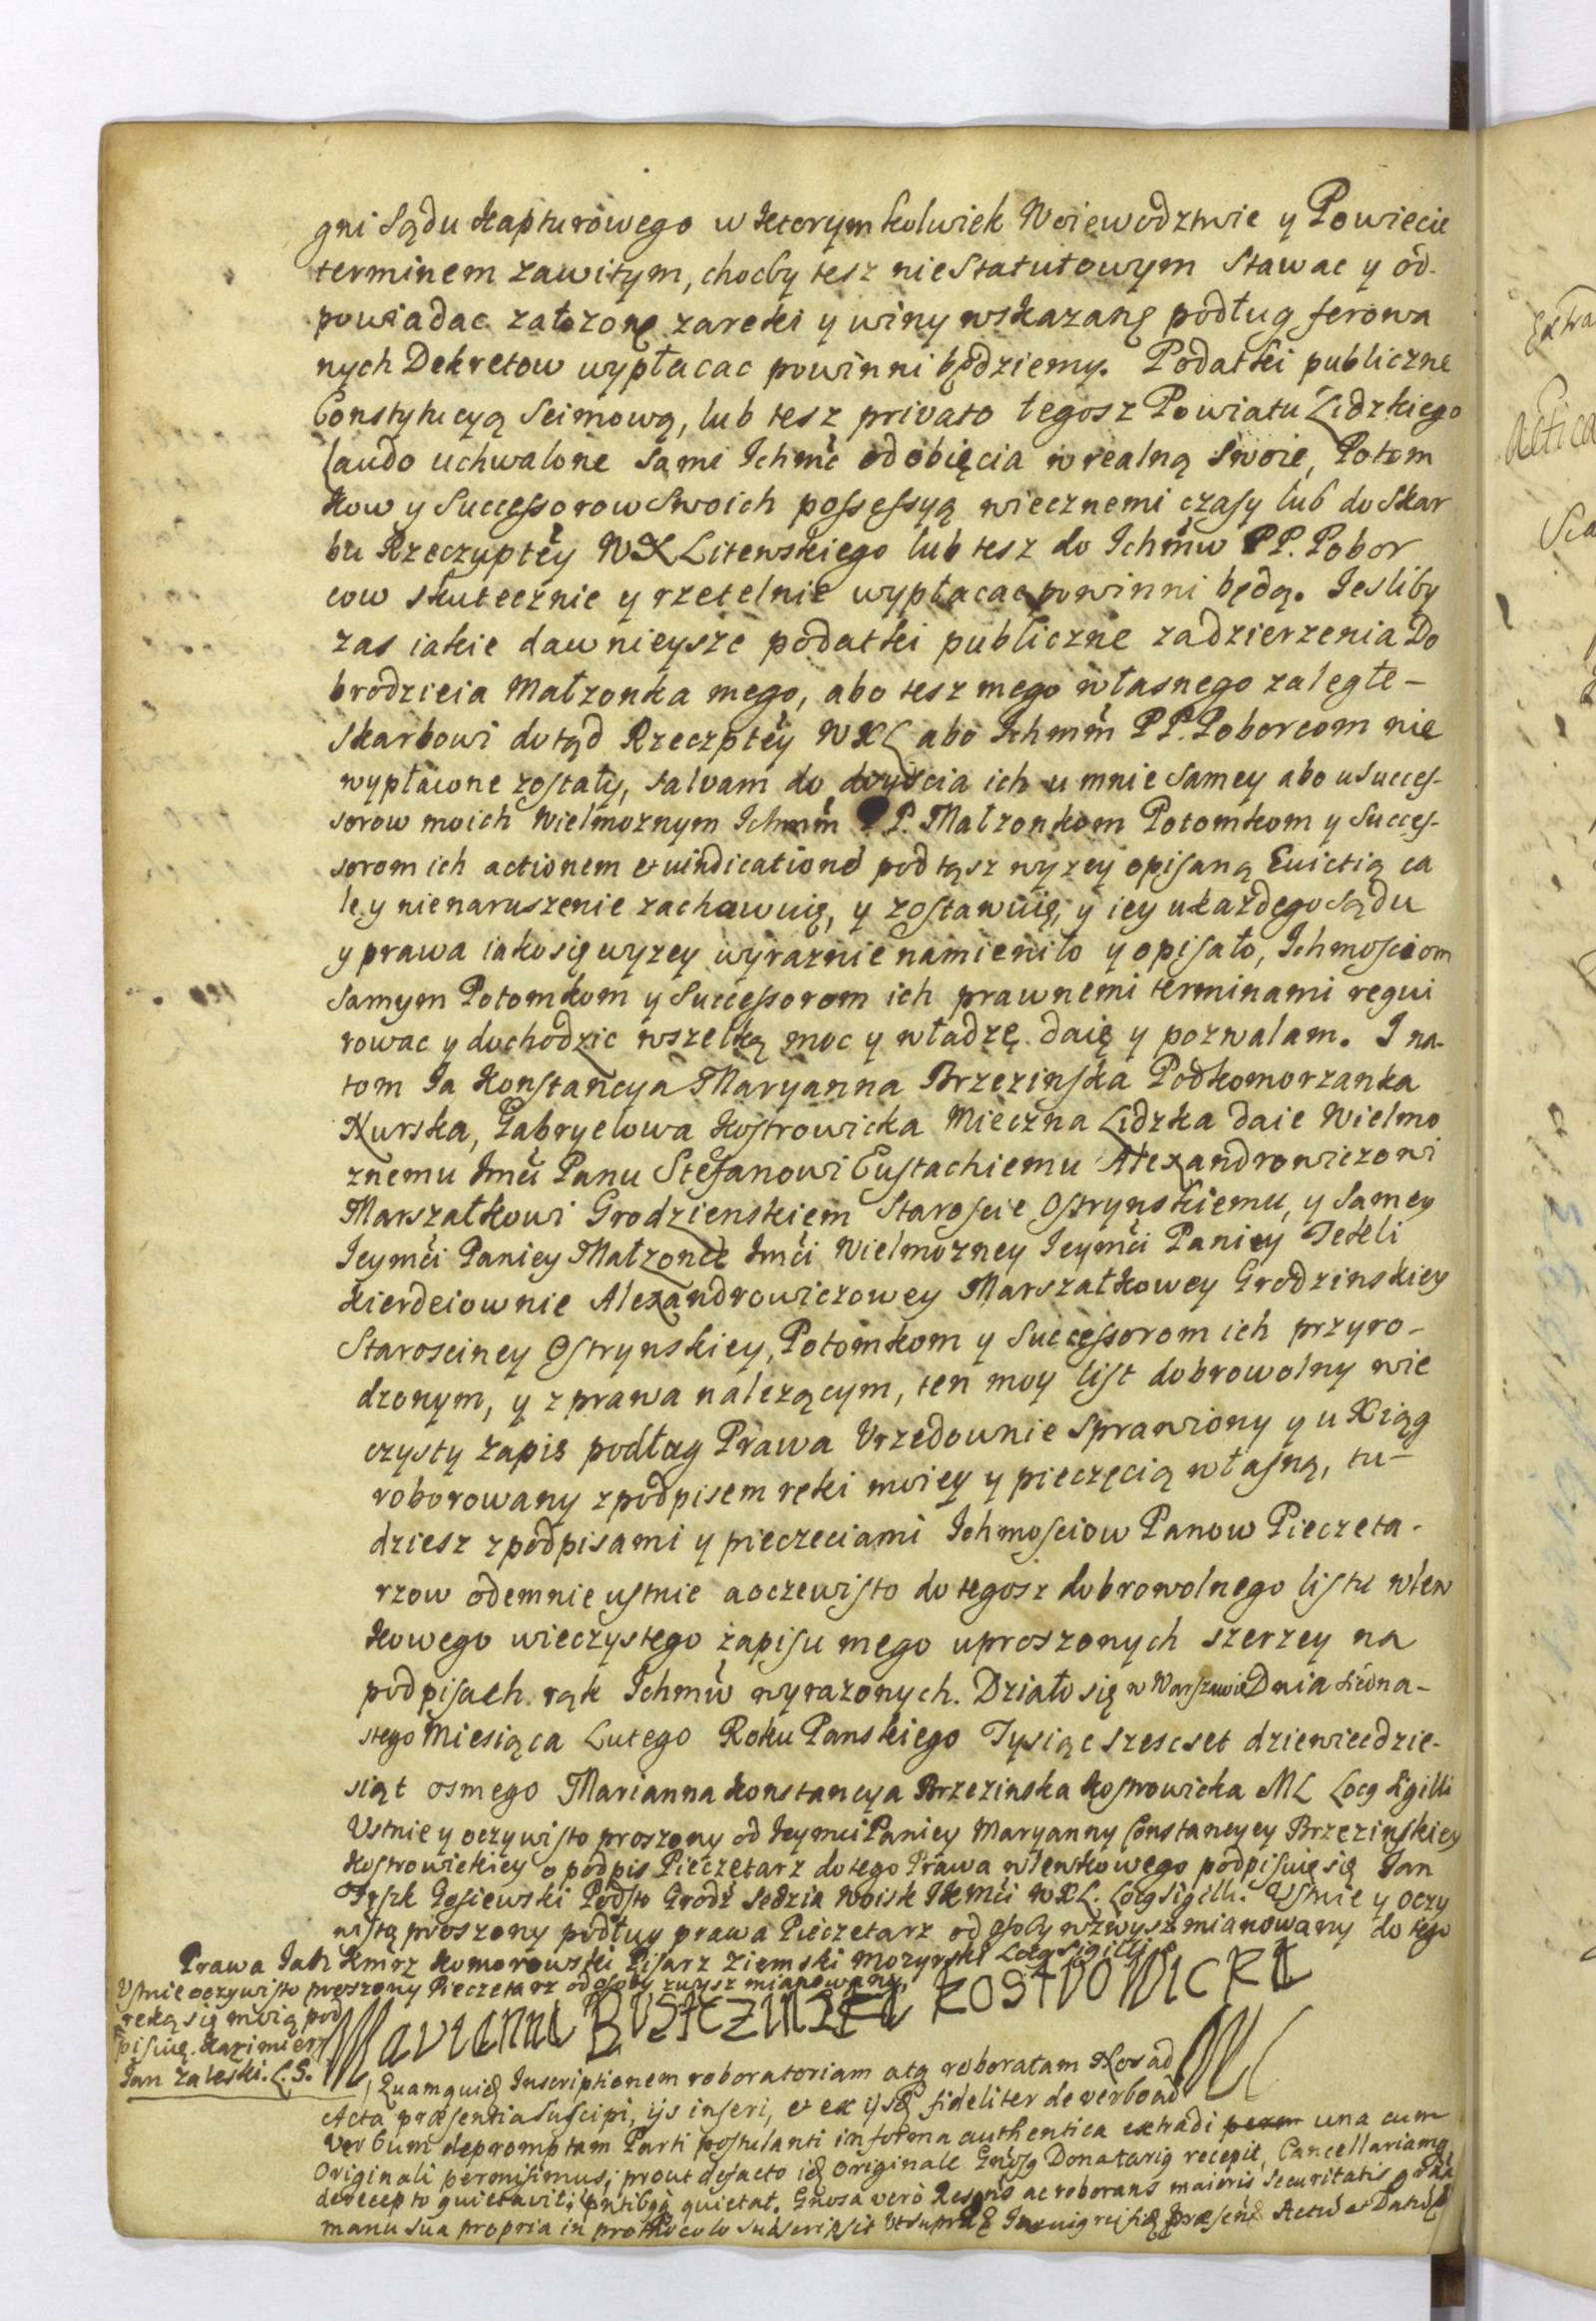 gni Sądu Kapturowego w ktorymkolwiek Woiewodztwie y Powiecie
terminem zawitym, chocby tesz nie Statutowym Stawac y od-
powiadac założone zareki y winy wskazane podług ferowa
nych Dekretow wypłacac powinni będziemy. Podatki publiczne
Constytucyą Seimową, lub tesz privato tegosz Powiatu Lidzkiego
laudo uchwalone Sami Ichmć od obięcia w realną swoię, Potom
kow y Successorow Swoich possessyą wiecznemi czasy lub do Skar
bu Rzeczyptey WXLitewskiego lub tesz do Ichmw PP. Pobor
cow skutecznie y rzetelnie wypłacac powinni będą. Iesliby
zas iakie dawnieysze podatki publiczne zadzierzenia Do
brodzieia Małzonka mego, abo tesz mego własnego zaległe-
Skarbowi dotąd Rzeczptey WXL abo Ichmm PP. Poborcom nie
wypłacone zostały, salvam do doyscia ich u mnie Samey abo u Succes-
sorow moich Wielmoznym Ichmm P. Małzonkom Potomkom y Succes-
sorom ich actionem et vindicationē pod tąsz wyzey opisaną Euictią ca
łę y nienaruszenie zachowuię, y zostawuię, y iey u kazdego Sądu
y prawa iako się wyzey wyraznie namieniło y opisało, Ichmosciom
Samym Potomkom y Successorom ich prawnemi terminami reqvi
rowac y dochodzic wszelką moc y władzę daię y pozwalam. I na-
tom Ia Konstancya Maryanna Brzezinska Podkomorzanka
Nurska, Gabryelowa Kostrowicka Mieczna Lidzka daie Wielmo
znemu Imci Panu Stefanowi Eustachiemu Alexandrowiczowi
Marszałkowi Grodzienskiem Staroscie Ostrynskiemu, y Samey
Ieymći Paniey Małzonce Imći Wielmozney Ieymći Paniey Tekeli
Kierdeiownie Alexandrowiczowey Marszałkowey Grodzinskiey
Starosciney Ostrynskiey, Potomkom y Successorom ich przyro-
dzonym, y z prawa nalezącym, ten moy list dobrowolny wie
czysty zapis podług Prawa Vrzedownie Sprawiony y u Xiąg
roborowany z podpisem ręki moiey y pieczęcią własną, tu-
dziesz z podpisami y pieczeciami Ichmosciow Panow Pieczeta-
rzow odemnie ustnie a oczewisto do tegosz dobrowolnego listu wlew
kowego wieczystego zapisu mego uproszonych szerzey na
podpisach rąk Ichmw wyrazonych. Działo się w Warszawie Dnia siedna-
stego Miesiąca Lutego Roku Panskiego Tysiąc szescset dziewiecdzie-
siąt osmego Marianna Konstancya Brzezinska Kostrowicka ML Locq Sigilli
Vstnie y oczywisto proszony od Ieymci Paniey Maryanny Constancyey Brzezinskiey
Kostrowickiey o podpis Pieczętarz do tego Prawa wlewkowego podpisuię się Ian
Gosiewski Podsto Grodź Sedzia Woisk IKMći WXL. Locq Sigilli. Ustnie y oczy
wisto proszony podług prawa Pieczetarz od osoby wzwysz mianowany do tego
Prawa Iak Kmrz Komorowski Pisarz Ziemski Mozyrski Locq Sigilli
Vstnie oczywisto proszony Pieczetarz od osoby zwysz mianowany
reką się moią pod
pisuię. Kazimierz
Ian Zaleski. L.S.
Marianna Brzezinska Kostrowicka
ML
Quamquidē Inscriptionem roboratoriam atq roboratam Nos ad
Acta præsentia Suscipi, ijs inseri, et ex ijsdē fideliter de verbo ad
verbum depromptam Parti postulanti in forma authentica extradi una cum
Originali permisimus, prout de facto idē Originale Gnosq Donatariq recepit, Cancellariamq
de recepto quietavit, pntibqq quietat. Gnosa verò Resgns ac roborans maioris securitatis grā
manu sua propria in prothocolo subscripsit Vt supra Actū et Datū